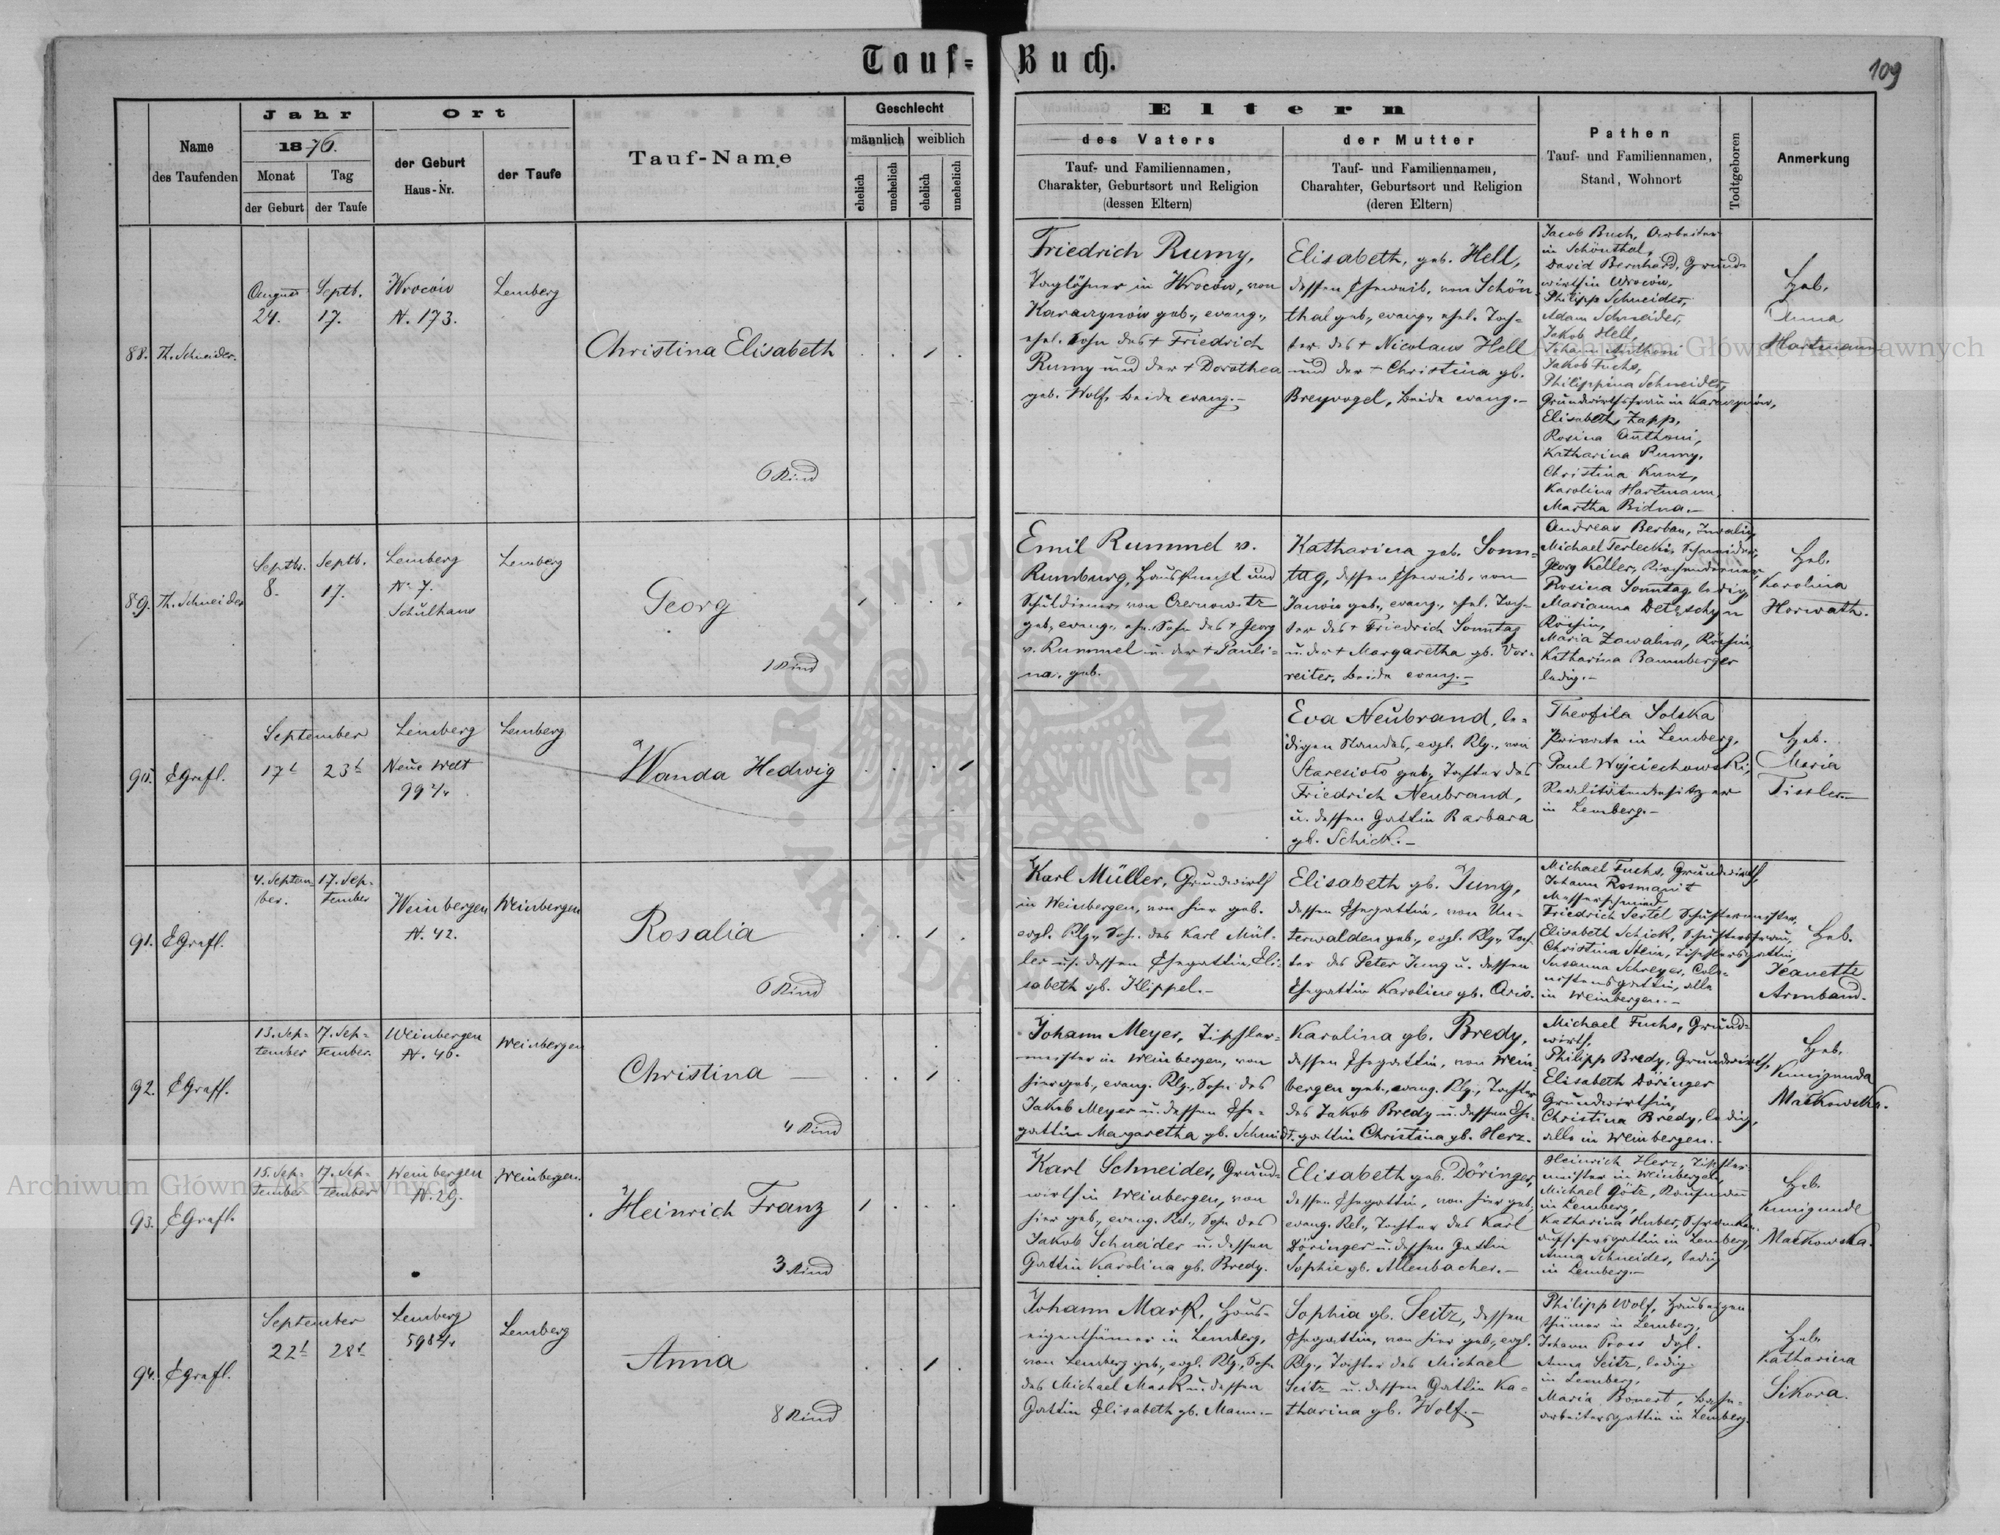 Tauf-Buch.
109
Name
des Taufenden
Jahr
1876.
Monat
Tag
der Geburt
der Taufe
Ort
der Geburt
Haus-Nr.
der Taufe
Tauf-Name
Geschlecht
männlich
weiblich
ehelich
unehelich
ehelich
unehelich
Eltern
des Vaters
Tauf- und Familiennamen,
Charakter, Geburtsort und Religion
(dessen Eltern)
der Mutter
Tauf- und Familiennamen,
Charahter, Geburtsort und Religion
(deren Eltern)
Pathen
Tauf- und Familiennamen,
Stand, Wohnort
Todtgeboren
Anmerkung
88. Th. Schneider.
August
24.
Septb.
17.
Wrocow
N. 173.
Lemberg
Christina Elisabeth
6 Kind
Friedrich Rumy,
Taglöhner in Wrocow, von
Karaczynów geb., evang.,
ehel. Sohn des + Friedrich
Rumy und der + Dorothea
geb. Wolf, beide evang.-
Elisabeth, geb. Hell,
dessen Eheweib, von Schön-
thal geb., evang., ehel. Toch-
ter des + Nicolaus Hell
und der + Christina gb.
Breyvogel, beide evang.-
Jacob Buch, Arbeiter
in Schönthal,
David Bernhard, Grund-
wirth in Wrocow,
Philipp Schneider,
Adam Schneider,
Jakob Hell,
Johann Anthoni
Jakob Fuchs,
Philippina Schneider,
Grundwirthsfrau in Karaczynów,
Elisabeth Zapp,
Rosina Anthoni,
Katharina Rumy,
Christina Kunz,
Karolina Hartmann,
Martha Bidna.-
Heb.
Anna
Hartmann
89. Th. Schneider
Septb.
8.
Septb.
17.
Lemberg
N. 7.
Schulhaus
Lemberg
Georg
1 Kind
Emil Rummel v.
Rumburg, Hausknecht und
Schuldiener von Czernowitz
geb., evang., ehe. Sohn des + Georg
v. Rummel u. der + Pauli-
na, geb.
Katharina geb. Sonn-
tag, dessen Eheweib, von
Janów geb., evang., ehel. Toch-
ter des + Friedrich Sonntag
u. der + Margaretha gb. Vor-
reiter, beide evang.-
Andreas Berban, Invalid,
Michael Terlecki, Schneider,
Georg Keller, Kirchendiener,
Rosina Sonntag, ledig,
Marianna Detzschyn
Köchin,
Maria Zawalna, Köchin,
Katharina Bamberger
ledig.-
Heb.
Karolina
Horwath.
90. EGrafl.
September
17t
23t
Lemberg
Neue Welt
99 2/4
Lemberg
Wanda Hedwig
Eva Neubrand, le-
digen Standes, evgl. Rlg., von
Staresioło geb., Tochter des
Friedrich Neubrand,
u. dessen Gattin Barbara
gb. Schick.-
Theofila Solska
Private in Lemberg,
Paul Wojciechowski,
Realitätenbesitzer
in Lemberg.-
Heb.
Maria
Tissler.-
91. EGrafl.
4. Septem-
ber.
17. Sep-
tember
Weinbergen
N. 42.
Weinbergen
Rosalia
6 Kind
Karl Müller, Grundwirth
in Weinbergen, von hier geb.
evgl. Rlg., Soh. des Karl Mül-
ler u. dessen Ehegattin Eli-
sabeth gb. Klippel.-
Elisabeth gb. Jung,
dessen Ehegattin, von Un-
terwalden geb., evgl. Rlg., Toch-
ter des Peter Jung u. dessen
Ehegattin Karoline gb. Oris.
Michael Fuchs, Grundwirth,
Johann Rosmanit
Messerschmied
Friedrich Sertel Schustermeister,
Elisabeth Schick, Schustersfrau,
Christina Stein, Tischlersgattin,
Susanna Schreyer, Colo-
nistensgattin, alle
in Weinbergen.-
Heb.
Jeanette
Armband.
92. EGrafl.
13. Sep-
tember
17. Sep-
tember.
Weinbergen
N. 46.
Weinbergen
Christina
4 Kind
Johann Meyer, Tischler-
meister in Weinbergen, von
hier geb., evang. Rlg., Sohn des
Jakob Meyer u. dessen Ehe-
gattin Margaretha gb. Schmidt.
Karolina gb. Bredy,
dessen Ehegattin, von Wein-
bergen geb., evang. Rlg., Tochter
des Jakob Bredy u. dessen Ehe-
gattin Christina gb. Herz.-
Michael Fuchs, Grund-
wirth,
Philipp Bredy, Grundwirth,
Elisabeth Döringer
Grundwirthin,
Christina Bredy, ledig,
alle in Weinbergen.-
Heb.
Kunigunda
Małkowska.
93. EGrafl.
15. Sep-
tember
17. Sep-
tember
Weinbergen
N. 29.
Weinbergen.
Heinrich Franz
3 Kind
Karl Schneider, Grund-
wirth in Weinbergen, von
hier geb., evang. Rel., Sohn des
Jakob Schneider u. dessen
Gattin Karolina gb. Bredy.
Elisabeth geb. Döringer,
dessen Ehegattin, von hier geb.,
evang. Rel., Tochter des Karl
Döringer u. dessen Gattin
Sophie gb. Allenbacher.-
Heinrich Herz, Tischler-
meister in Weinbergen,
Michael Götz, Kaufmann
in Lemberg,
Katharina Huber,
aufsehersgattin in Lemberg,
Anna Schneider, ledig
in Lemberg.-
Heb.
Kunigunde
Małkowska.
94. EGrafl.
September
22t
28t
Lemberg
598 2/4
Lemberg
Anna
8 Kind
Johann Mark, Haus-
eigenthümer in Lemberg,
von Lemberg geb., evgl. Rlg., Sohn
des Michael Mark u. dessen
Gattin Elisabeth gb. Mann.-
Sophia gb. Seitz, dessen
Ehegattin, von hier geb., evgl.
Rlg., Tochter des Michael
Seitz u. dessen Gattin Ka-
tharina gb. Wolf.-
Philipp Wolf, Hauseigen-
thümer in Lemberg,
Johann Pross dgl.
Anna Seitz, ledig
in Lemberg,
Maria Bonert,
arbeitersgattin in Lemberg.
Heb.
Katharina
Sikora.
Archiwum Główne Akt Dawnych
Archiwum Główne Akt Dawnych